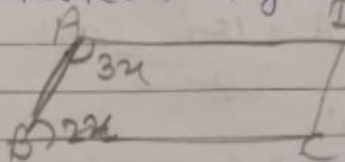 A
3x
B 2x C